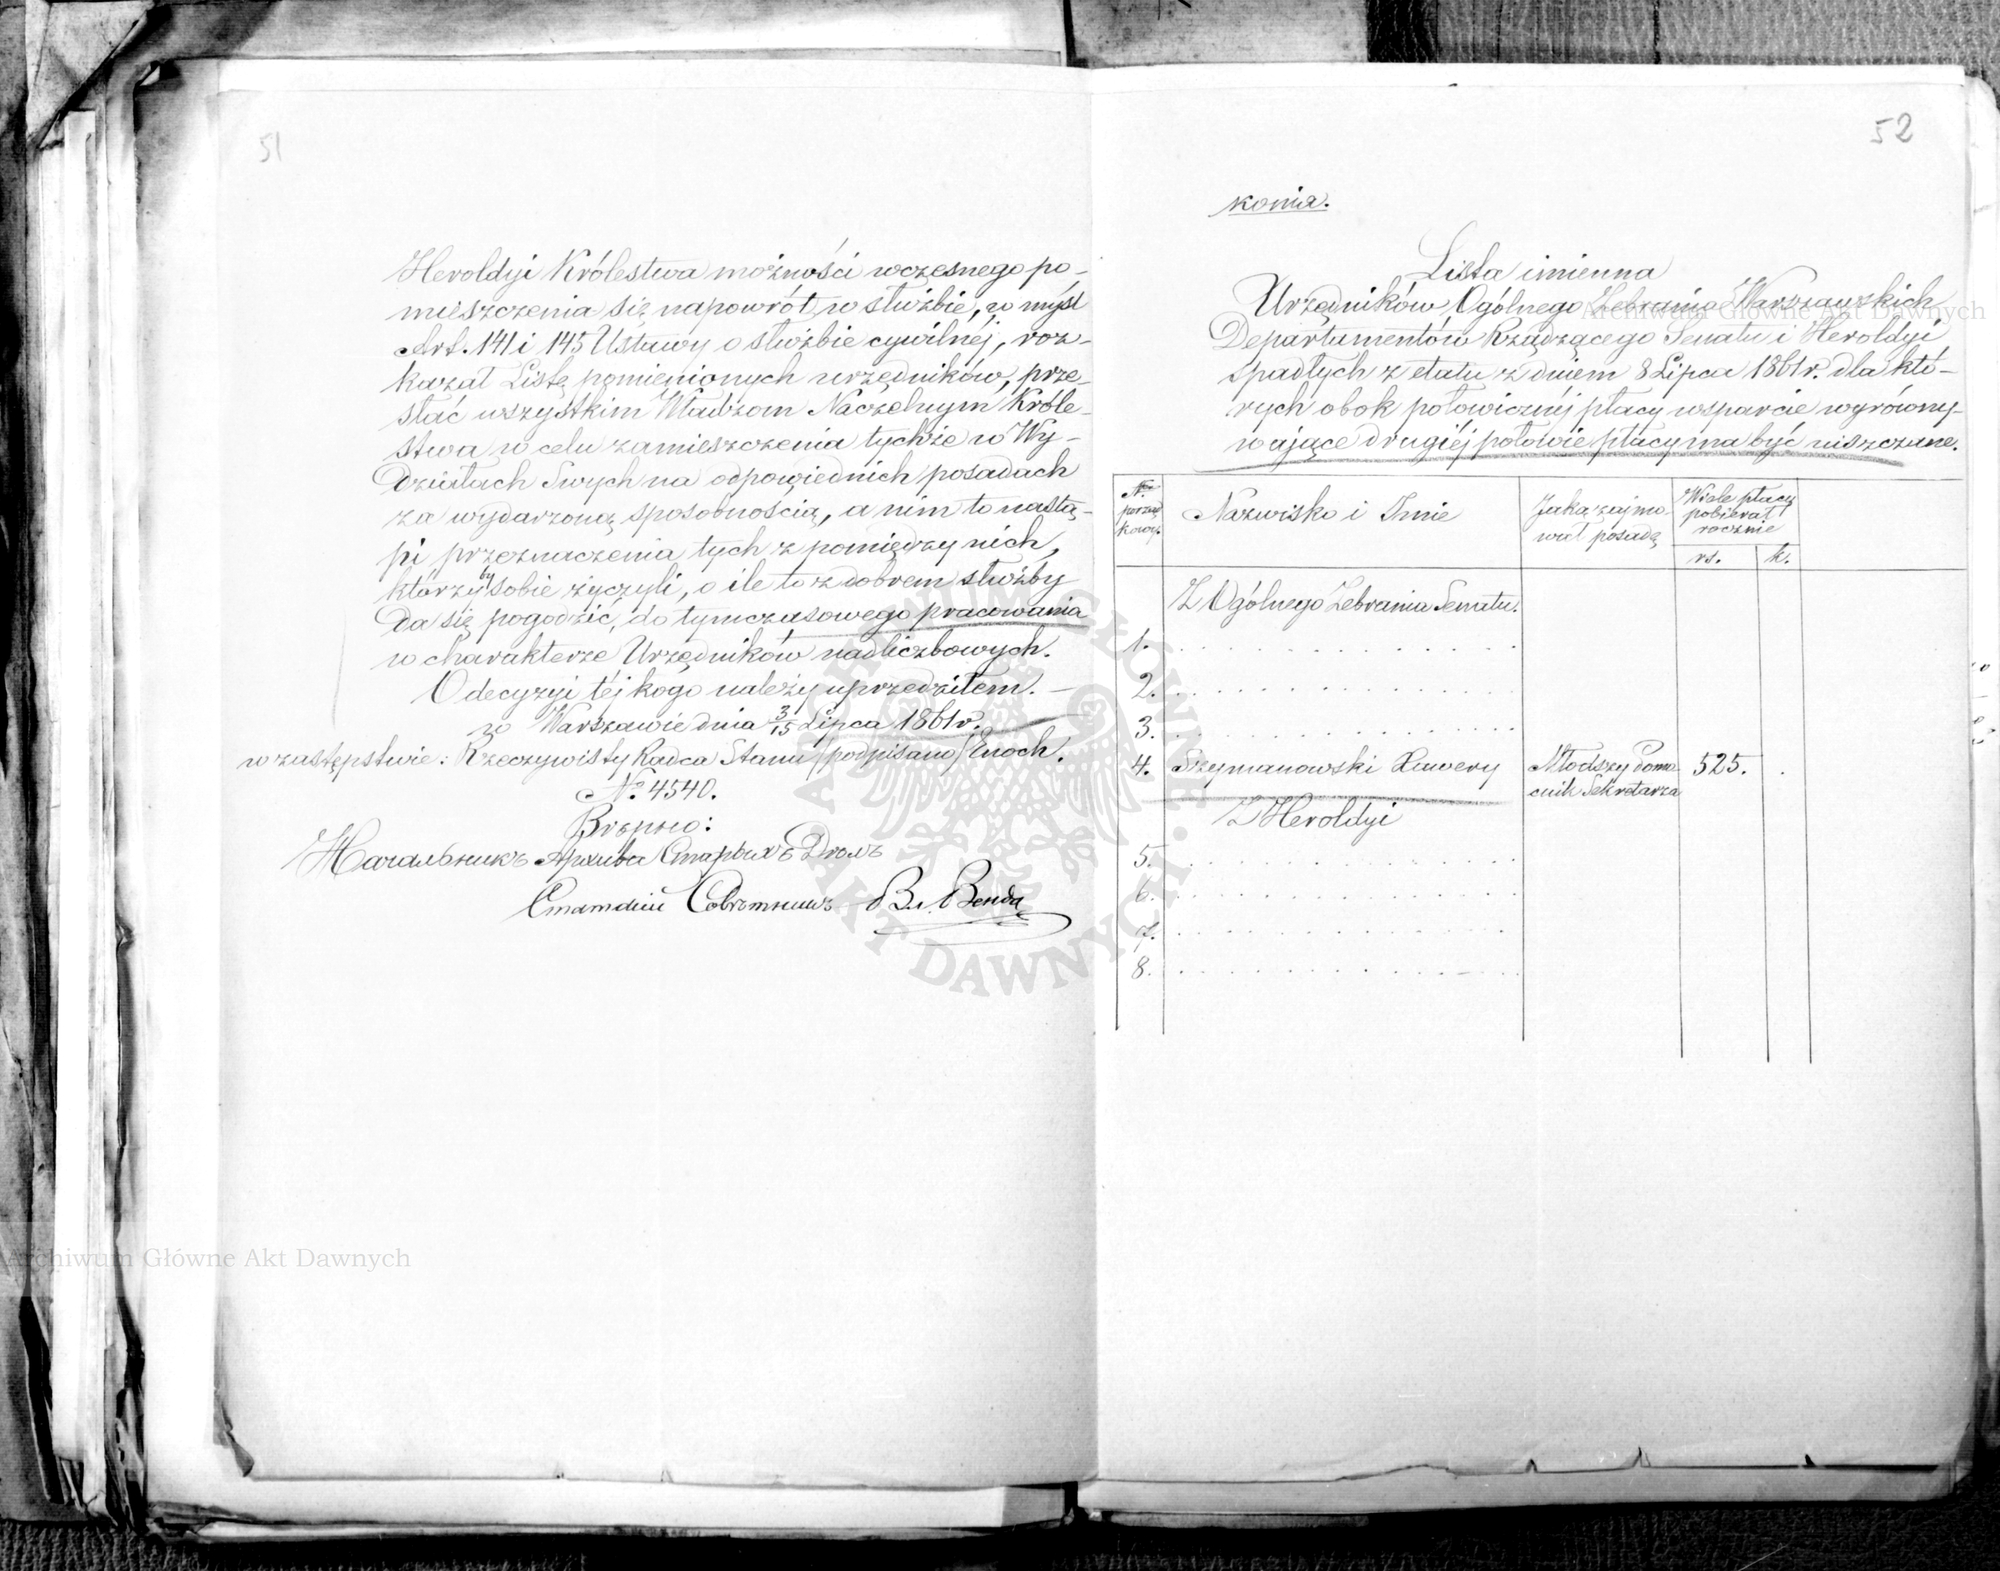 51
Heroldyi Królestwa możności wczesnego po-
mieszczenia się napowrót w służbie, w myśl
Art. 141 i 145 Ustawy o służbie cywilnéj, roz-
kazał Listę pomienionych urzędników, prze-
słać wszystkim Władzom Naczelnym Króle-
stwa w celu zamieszczenia tychże w Wy-
działach Swych na odpowiednich posadach
za wydarzoną sposobnością, a nim to nastą-
pi przeznaczenia tych z pomiędzy nich,
którzy by sobie życzyli, o ile to z dobrem służby
da się pogodzić, do tymczasowego pracowania
w charakterze Urzędników nadliczbowych.
O decyzyi téj kogo należy uprzedziłem. —
w Warszawie dnia 3/15 Lipca 1861 r.
w zastępstwie: Rzeczywisty Radca Stanu /podpisano/ Enoch.
№ 4540.
Вѣрно:
Начальникъ Архива Старыхъ Дѣлъ
Статскій Совѣтникъ В. Венда
52
конiя.
Lista imienna
Urzędników Ogólnego Zebrania Warszawskich
Departamentów Rządzącego Senatu i Heroldyi
spadłych z etatu z dniem 8 Lipca 1861 r. dla któ-
rych obok połowicznéj płacy wsparcie wyrówny-
wające drugiéj połowie płacy ma być uiszczane.
N. porząd kowy.
Nazwisko i Imie
Jaką zajmo- wał posadę
Wiele płacy pobierał rocznie
rs. k.
Z Ogólnego Zebrania Senatu.
1. . . . . . . . . . . . . .
2. . . . . . . . . . . . . .
3. . . . . . . . . . . . . .
4. Szymanowski Xawery Młodszy Pomo- cnik Sekretarza 525. .
Z Heroldyi
5. . . . . . . . . . . . . .
6. . . . . . . . . . . . . .
7. . . . . . . . . . . . . .
8. . . . . . . . . . . . . .
Archiwum Główne Akt Dawnych
Archiwum Główne Akt Dawnych
ARCHIWUM GŁÓWNE AKT DAWNYCH